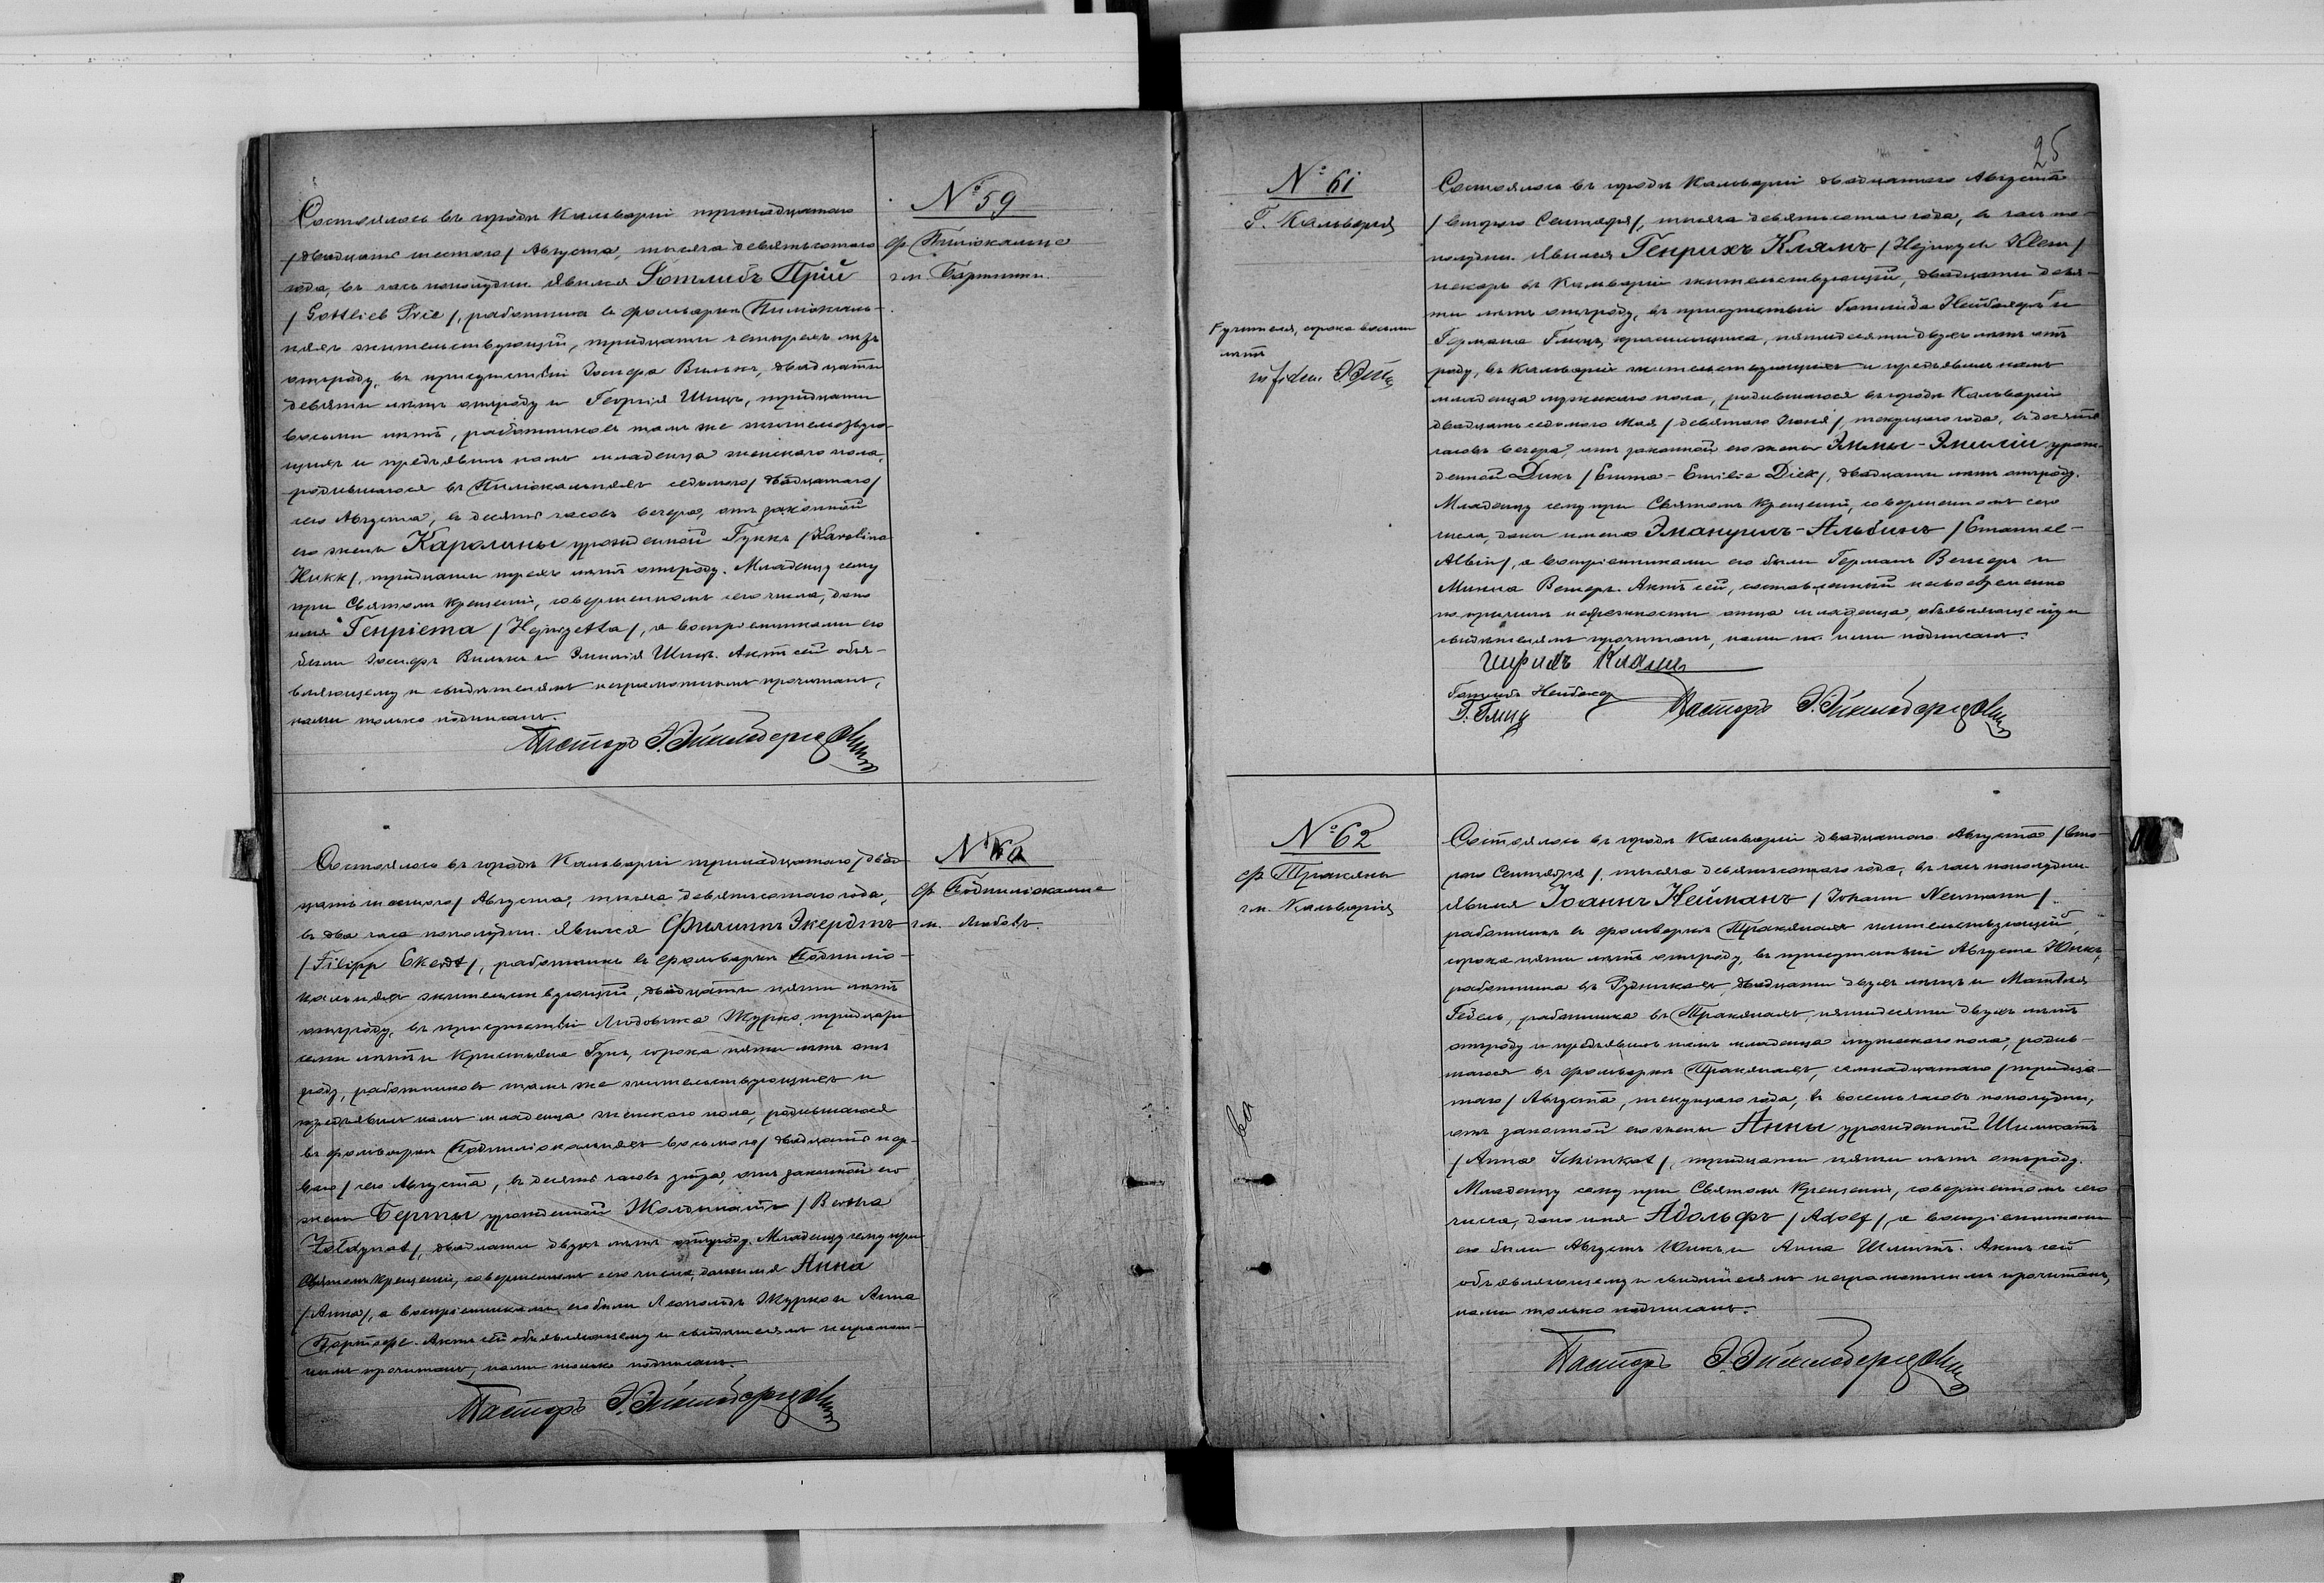 № 59
ф. Пилiокальне
гм. Бартники.
Состоялось въ городѣ Кальварiи тринадцатаго
/двадцать шестого/ Августа, тысяча девятьсотаго
года, въ часъ пополудни. Явился Готлибъ Прiй
/Gottlieb Prie/, работникъ въ фольваркѣ Пилiокаль-
няхъ жительствующiй, тридцати четырехъ лѣтъ
отъ роду, въ присутствiи Iосифа Вилькъ, двадцати
девяти лѣтъ отъ роду и Георгiя Шицъ, тридцати
восьми лѣтъ, работниковъ тамъ же жительствую-
щихъ и предъявилъ намъ младенца женскаго пола,
родившагося въ Пилiокальняхъ седьмого /двадцатаго/
сего Августа, въ десять часовъ вечера, отъ законной
его жены Каролины урожденной Гуккъ /Karolina
Hukk/, тридцати трехъ лѣтъ отъ роду. Младенцу сему
при Святомъ Крещенiи, совершенномъ сего числа, дано
имя Генрiета /Henrjetta/, а воспрiемниками его
были Iосифъ Вилькъ и Эмилiя Шицъ. Актъ сей объя-
вляющему и свидѣтелямъ неграмотнымъ прочитанъ,
нами только подписанъ.
Пасторъ Э.
№ 60
ф. Подпилiокальне
гм. Любовъ.
Состоялось въ городѣ Кальварiи тринадцатаго /двад-
цать шестого/ Августа, тысяча девятьсотаго года,
въ два часа пополудни. Явился Филиппъ Экердтъ
/Filipp Ekerdt/, работникъ въ фольваркѣ Подпилiо-
кальняхъ жительствующiй, двадцати пяти лѣтъ
отъ роду, въ присутствiи Людовика Журко, тридцати
семи лѣтъ и Кристьяна Гукъ, сорока пяти лѣтъ отъ
роду, работниковъ тамъ же жительствующихъ и
предъявилъ намъ младенца женскаго пола, родившагося
въ фольваркѣ Подпилiокальняхъ восьмого /двадцать пер-
ваго/ сего Августа, въ десять часовъ утра, отъ законной его
жены Берты урожденной Жолдынатъ /Bertha
Żołdynat/, двадцати двухъ лѣтъ отъ роду. Младенцу сему при
Святомъ Крещенiи, совершенномъ сего числа, дано имя Анна
/Anna/, а воспрiемниками его были Леопольдъ Журко и Анна
Актъ сей объявляющему и свидѣтелямъ неграмот-
нымъ прочитанъ, нами только подписанъ.
Пасторъ Э.
25
№ 61
Г. Кальварiя
Г учителя, сорока восьми
лѣтъ
in fidem
Состоялось въ городѣ Кальварiи двадцатаго Августа
/второго Сентября/, тысяча девятьсотаго года, въ часъ по-
полудни. Явился Генрихъ Клямъ /Hejnrych Klem/
пекарь въ Кальварiи жительствующiй, двадцати девя-
ти лѣтъ отъ роду, въ присутствiи Готлиба Нейбахеръ Г и
Германа Глицъ, красильщика, пятидесяти двухъ лѣтъ отъ
роду, въ Кальварiи жительствующихъ и предъявилъ намъ
младенца мужскаго пола, родившагося въ городѣ Кальварiи
двадцать седьмого Мая /девятаго Iюня/, текущаго года, въ десять
часовъ вечера, отъ законной его жены Эммы-Эмилiи урож-
денной Дикъ /Emma-Emilie Dick/, двадцати лѣтъ отъ роду.
Младенцу сему при Святомъ Крещенiи, совершенномъ сего
числа, даны имена Эмануилъ-Альбинъ /Emanuel-
Albin/, а воспрiемниками его были Германъ Венгеръ и
Минна Венгеръ. Актъ сей, составленный несвоевременно
по причинѣ небрежности отца младенца, объявляющему и
свидѣтелямъ прочитанъ, нами и ими подписанъ.
Клямъ
Готлибъ Нейбахер
Г. Глицъ
Пасторъ Э.
№ 62
ф. Тракяны
гм. Кальварiя
Состоялось въ городѣ Кальварiи двадцатаго Августа /вто-
рого Сентября/, тысяча девятьсотаго года, въ часъ пополудни.
Явился Iоаннъ Нейманъ /Iohann Neumann/,
работникъ въ фольваркѣ Тракянахъ жительствующiй,
сорока пяти лѣтъ отъ роду, въ присутствiи Августа Юнкъ,
работника въ Рудникахъ, двадцати двухъ лѣтъ и Матвѣя
Гедель, работника въ Тракянахъ, пятидесяти двухъ лѣтъ
отъ роду и предъявилъ намъ младенца мужскаго пола, родив-
шагося въ фольваркѣ Тракянахъ, семнадцатаго /тридца-
таго/ Августа, текущаго года, въ восемь часовъ пополудни,
отъ законной его жены Анны урожденной Шимкатъ
/Anna Schimkat/, тридцати пяти лѣтъ отъ роду.
Младенцу сему при Святомъ Крещенiи, совершенномъ сего
числа, дано имя Адольфъ /Adolf/, а воспрiемниками
его были Августъ Юнкъ и Анна Шмитъ. Актъ сей
объявляющему и свидѣтелямъ неграмотнымъ прочитанъ,
нами только подписанъ.
Пасторъ Э.